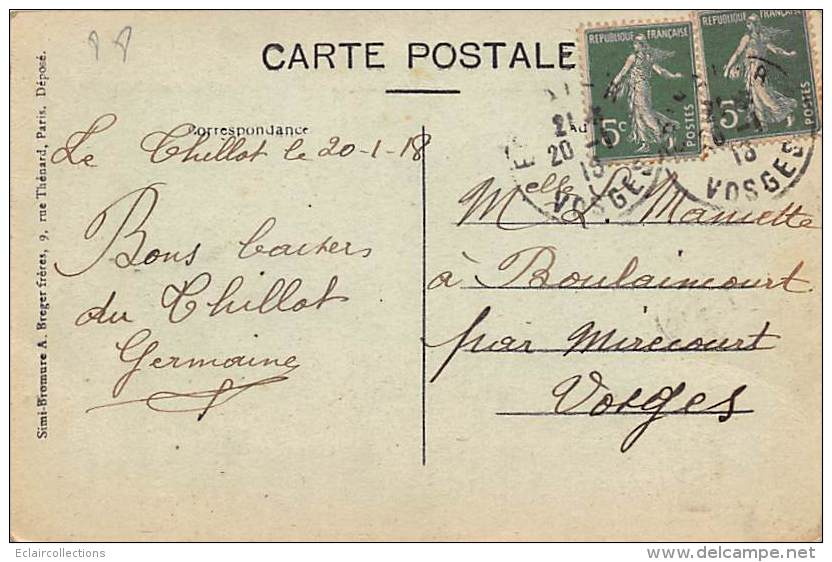 CARTE POSTALE
REPUBLIQUE FRANÇAISE
5c
POSTES
REPUBLIQUE FRANÇAISE
5
POSTES
Correspondance
Le Thillot le 20-1-18
Bons baisers
du Thillot
Germaine
Melle L.
à Boulaincourt
par Mirecourt
Vosges
21
20 -1
18
VOSGES
20 -1
18
VOSGES
Simi-Bromure A. Breger frères, 9, rue Thénard, Paris. Déposé.
Eclaircollections
delcampe.net